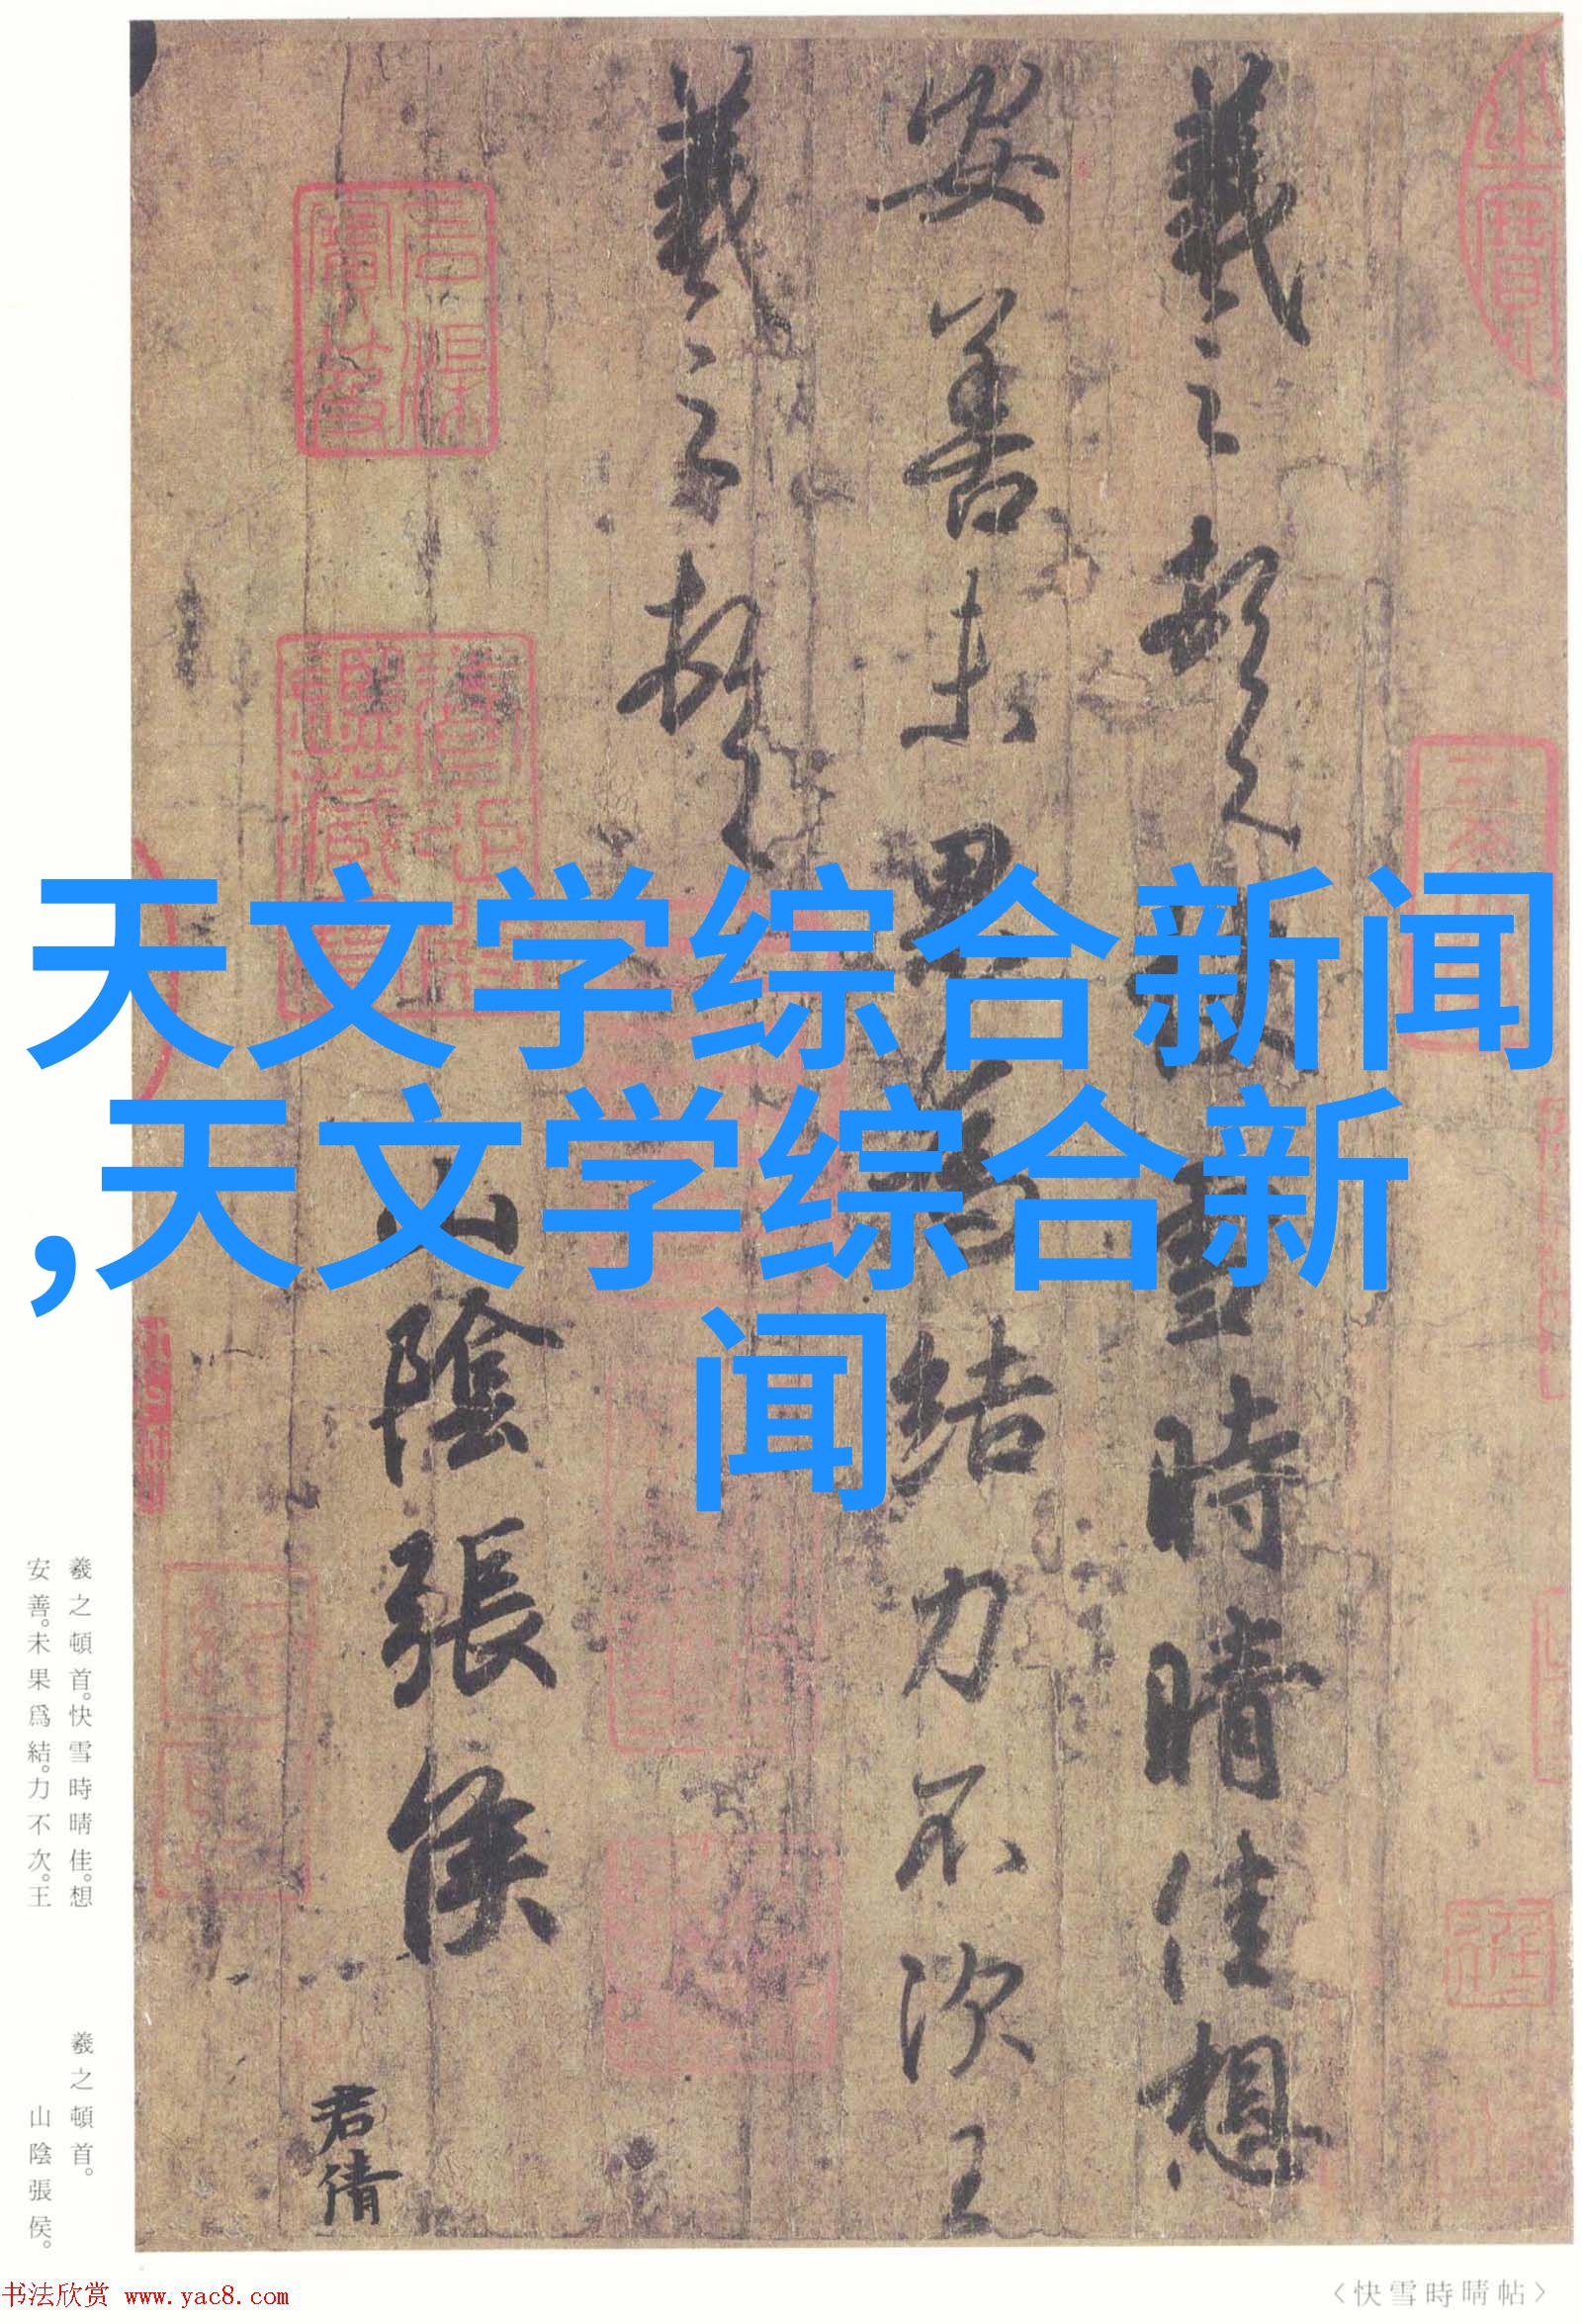 羲之頓首快雪時晴佳想
安善未果為結力不次王
羲之頓首
山陰張侯
君倩
天文学综合新闻
,天文学综合新
闻
羲之頓首。快雪時晴佳。想
安善。未果爲結。力不次。王
羲之頓首。
山陰張侯。
〈快雪時晴帖〉
书法欣赏 www.yac8.com